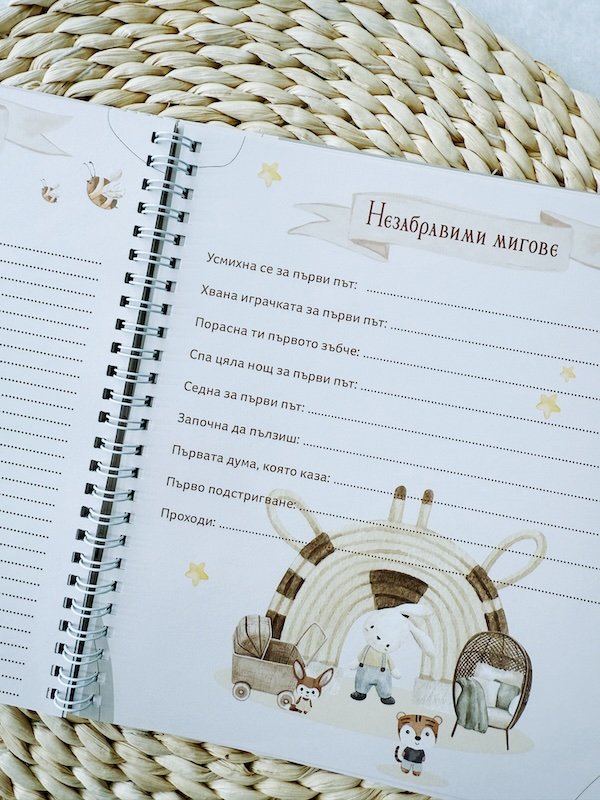 Незабравими мигове
Усмихна се за първи път:
Хвана играчката за първи път:
Порасна ти първото зъбче:
Спа цяла нощ за първи път:
Седна за първи път:
Започна да пълзиш:
Първата дума, която каза:
Първо подстригване:
Проходи: